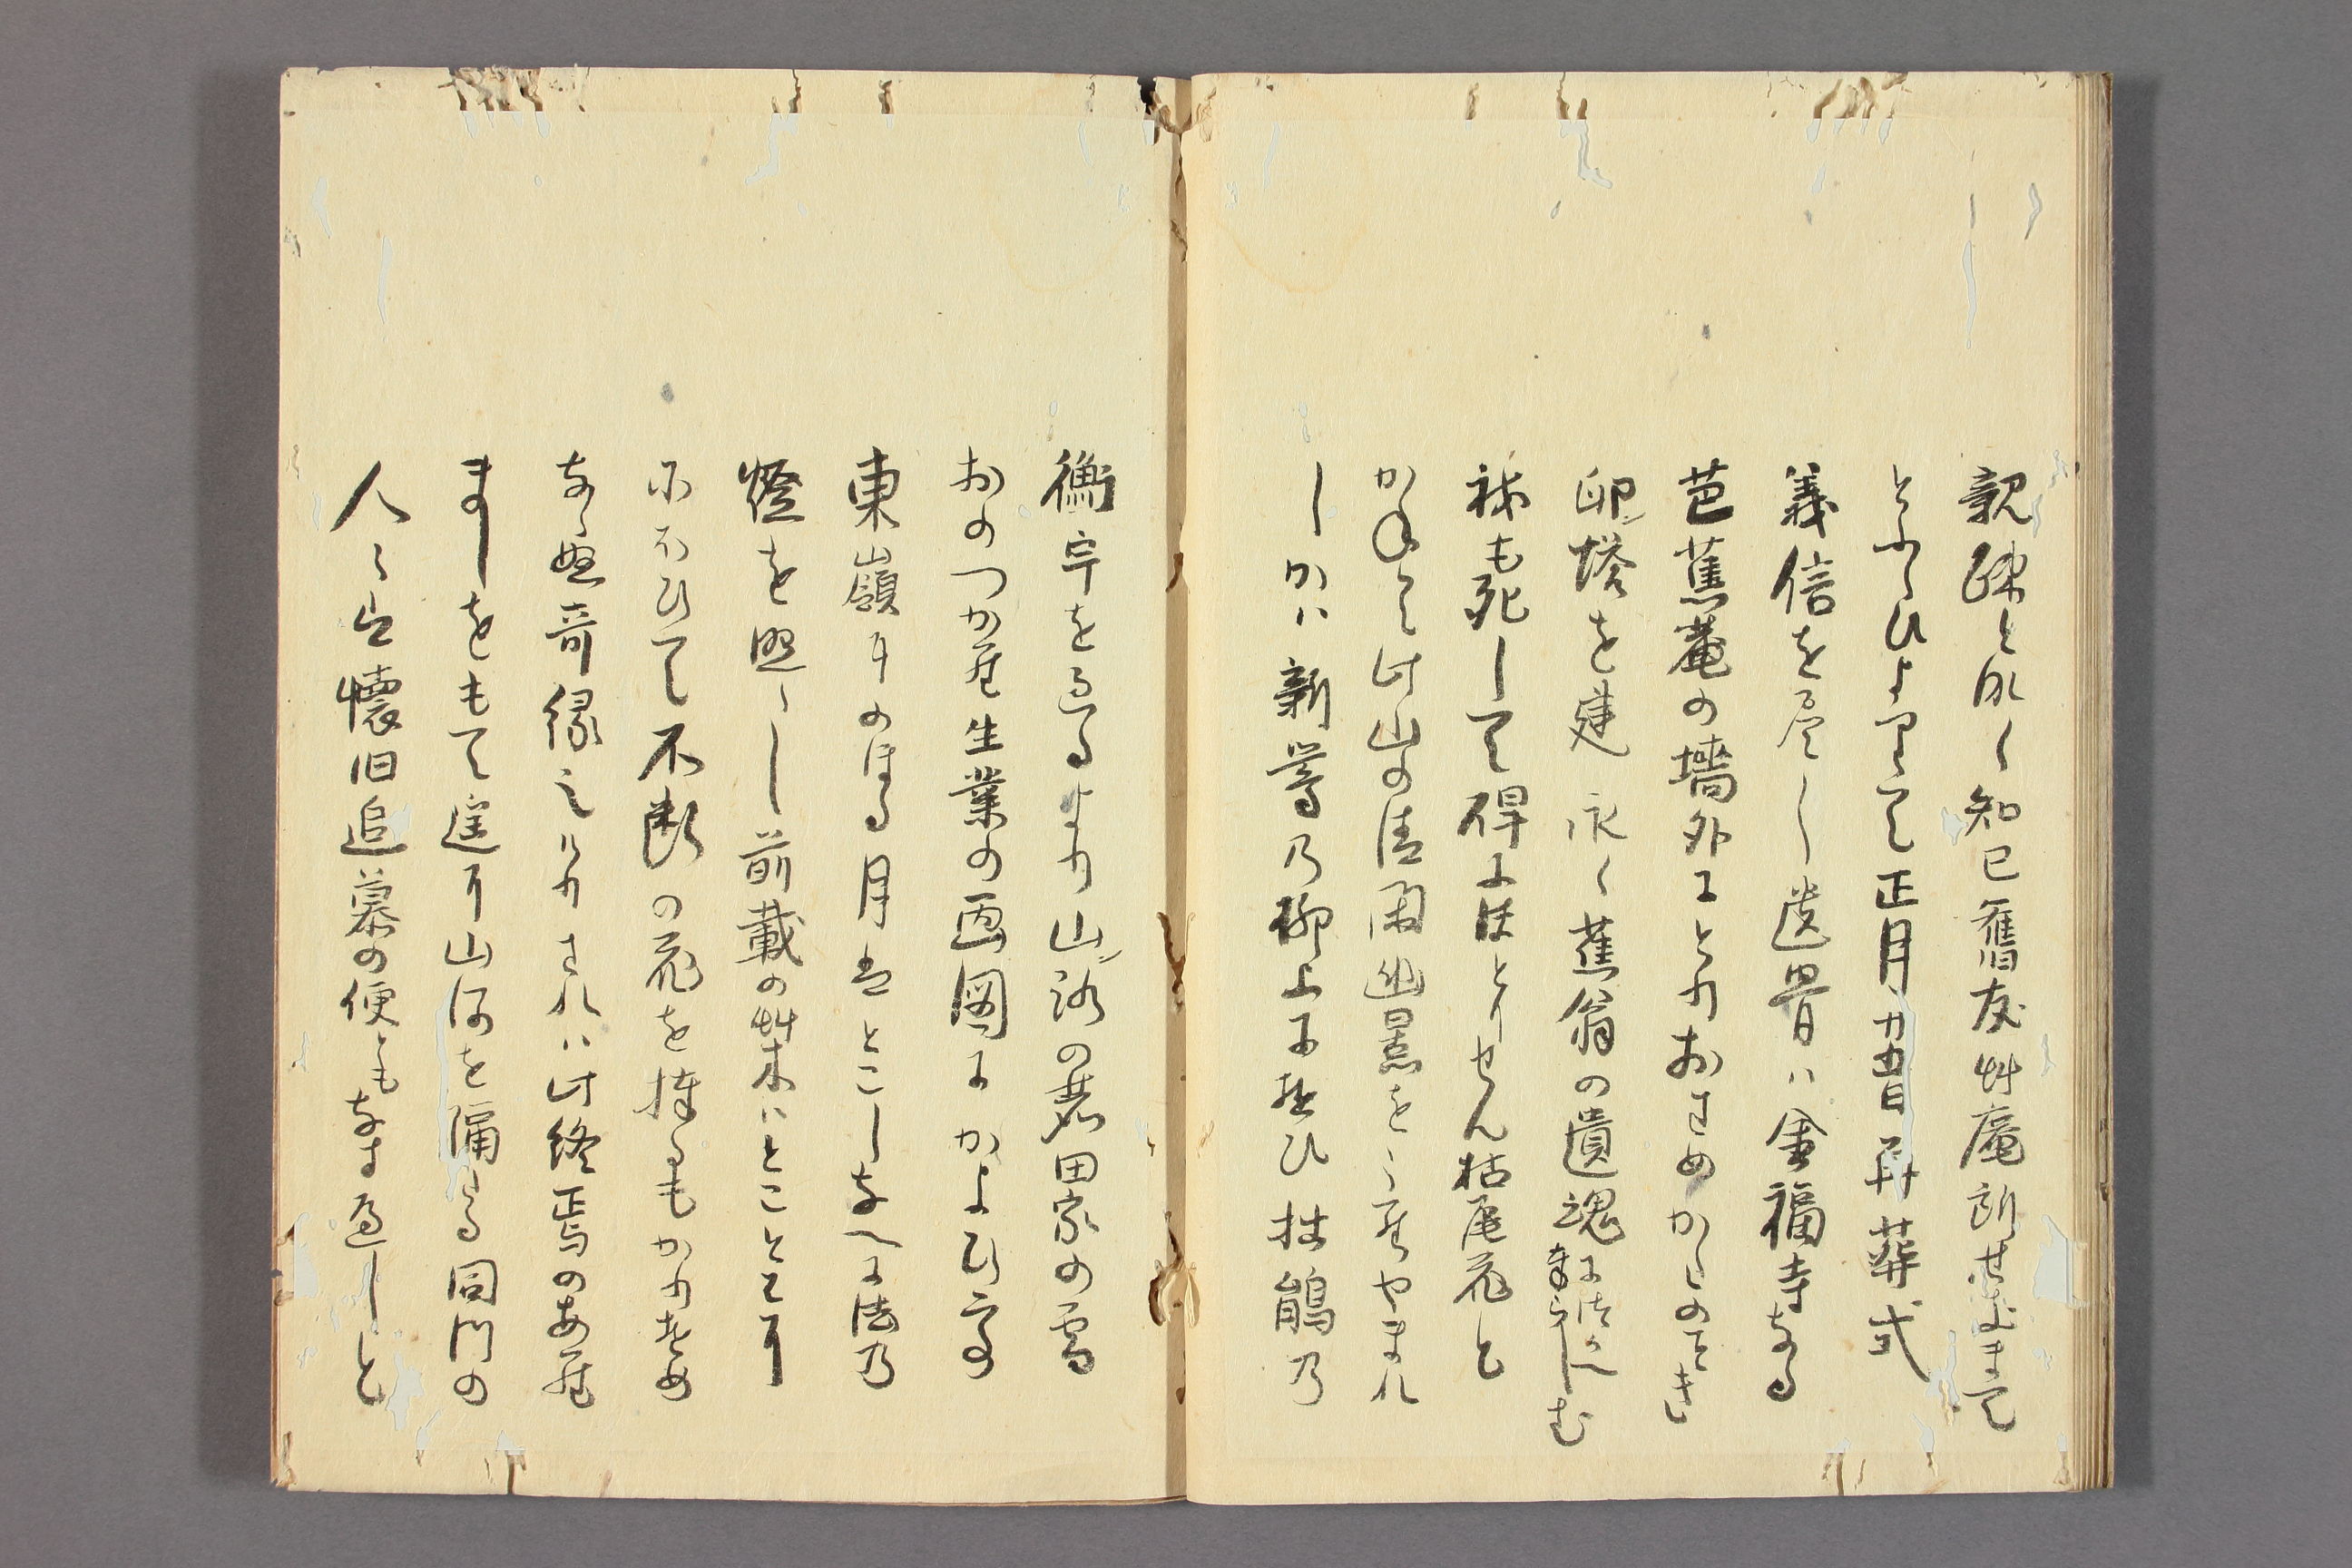 親疎となく知己舊友艸庵訪せ給ふまて
とふらひよりて正月廿五日再葬式
義信を尽し遺骨ハ金福寺なる
芭蕉菴の墻外にとりおさめかしのこき
卵塔を建永く蕉翁の遺魂に仕へまいらしむ
嗚も死して得はとりせん枯尾花と
かねて此山の清閑幽景をこのやまれ
しかハ新葬乃柳上に遊ひ拙鵑乃
衡宇を過るより山路の麦田家の雪
おのつから生業の画図にかよひ二の
東山嶺にのほる月はとこしなへに法乃
燈を照らし前栽の艸木ハとことはに
にほひて不断の花を捧るもかりそめ
ならぬ奇縁也けりされハ此終焉のあら
ましをもて遥に山河を隔たる同門の
人々に懐旧追慕の便ともなす過しと